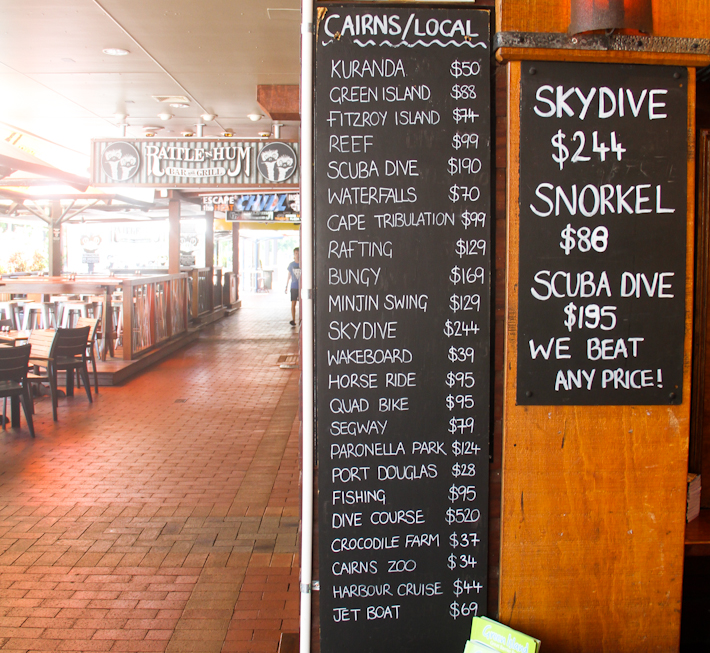 CAIRNS/LOCAL
KURANDA $50
GREEN ISLAND $88
FITZROY ISLAND $74
REEF $99
SCUBA DIVE $190
WATERFALLS $70
CAPE TRIBULATION $99
RAFTING $129
BUNGY $169
MINJIN SWING $129
SKYDIVE $244
WAKEBOARD $39
HORSE RIDE $95
QUAD BIKE $95
SEGWAY $79
PARONELLA PARK $124
PORT DOUGLAS $28
FISHING $95
DIVE COURSE $520
CROCODILE FARM $37
CAIRNS ZOO $34
HARBOUR CRUISE $44
JET BOAT $69
SKYDIVE
$244
SNORKEL
SCUBA DIVE
$195
WE BEAT
ANY PRICE!
RATTLE N HUM
BAR AND GRILL
ESCAPE